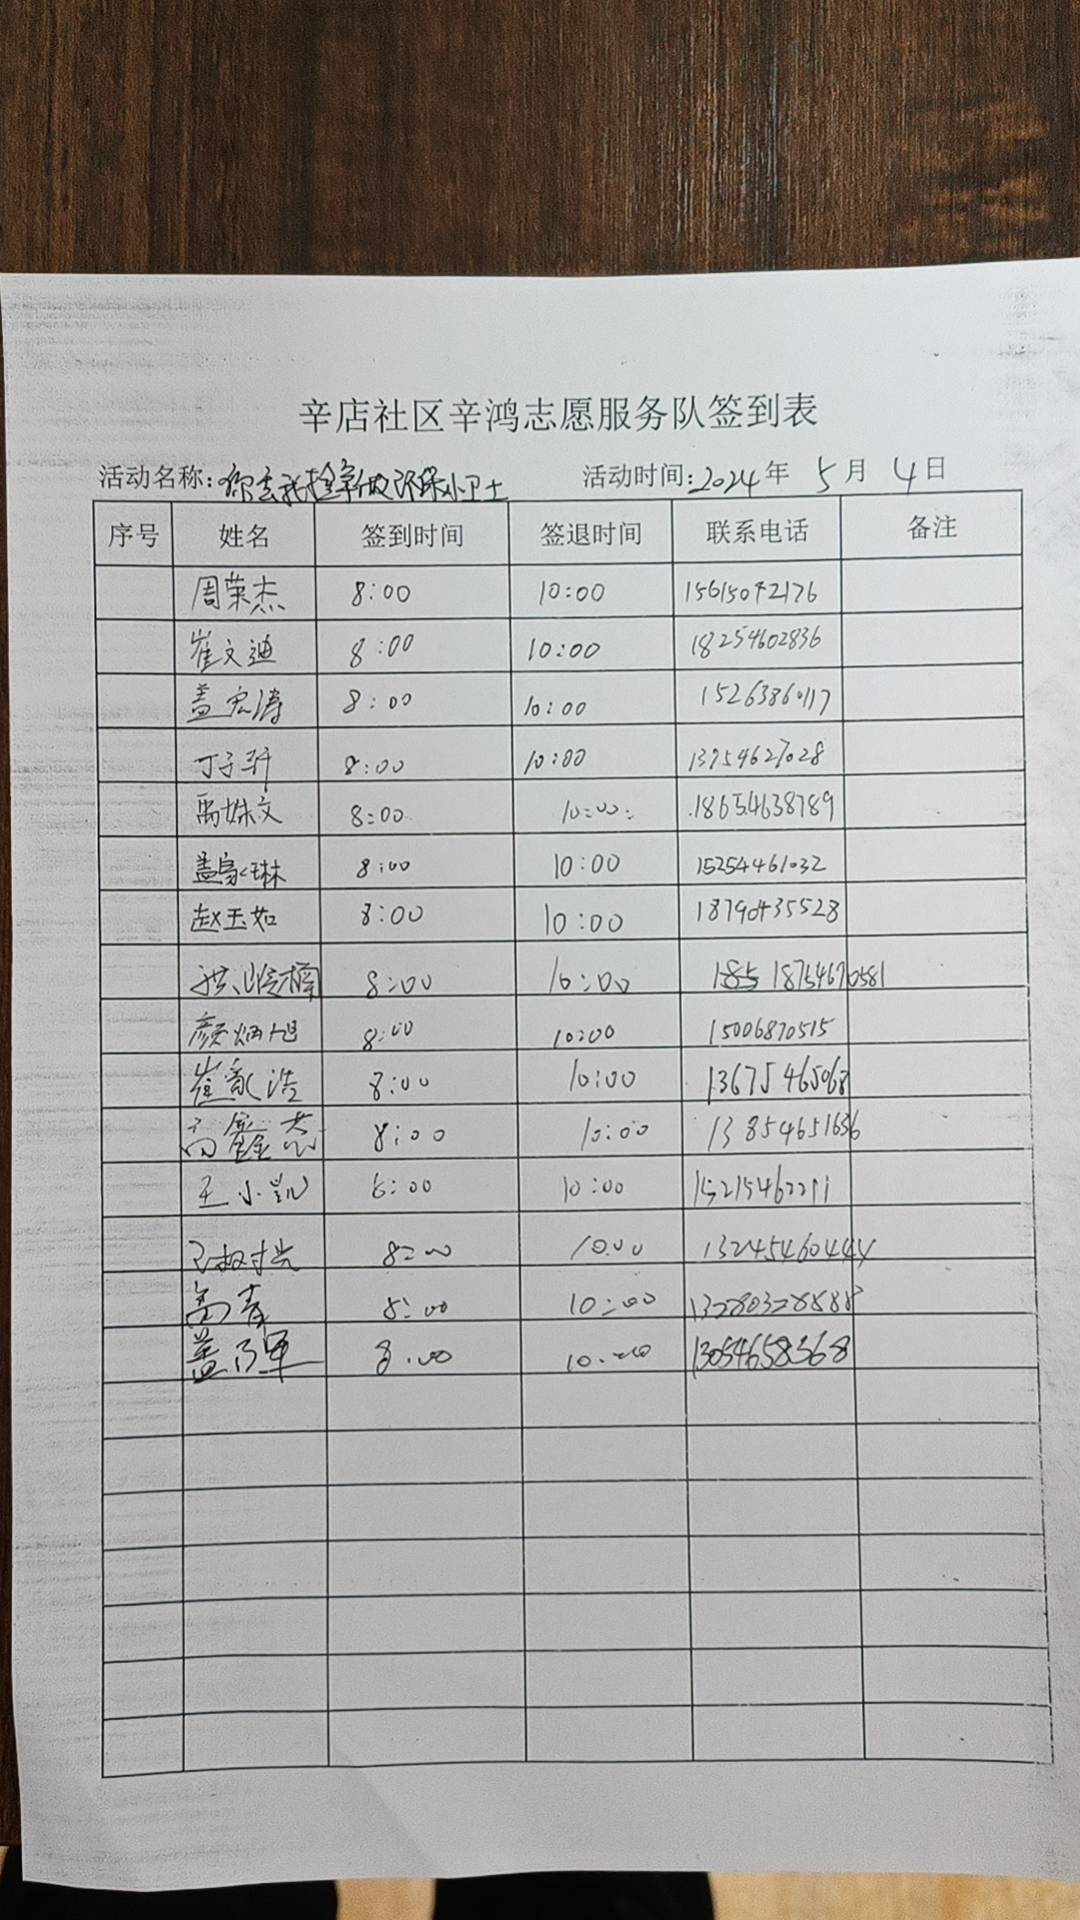 辛店社区辛鸿志愿服务队签到表
活动名称:你丢我捡争做环保小卫士 活动时间:2024年 5月 4日
序号 姓名 签到时间 签退时间 联系电话 备注
周荣杰 8:00 10:00 15615042176
崔文迪 8:00 10:00 18254602836
盖宏涛 8:00 10:00 15263860117
丁子轩 8:00 10:00 13954627028
禹姝文 8:00 10:00 18654638789
盖家琳 8:00 10:00 15254461032
赵玉如 8:00 10:00 18790435528
8:00 10:00 18754670581
颜炳旭 8:00 10:00 15006870515
崔 浩 8:00 10:00 13675465068
高鑫 8:00 10:00 13854651636
王小凯 8:00 10:00 15215462211
8:00 10:00 13245460444
高青 8:00 10:00 13280328888
盖乃军 8:00 10:00 13054658368